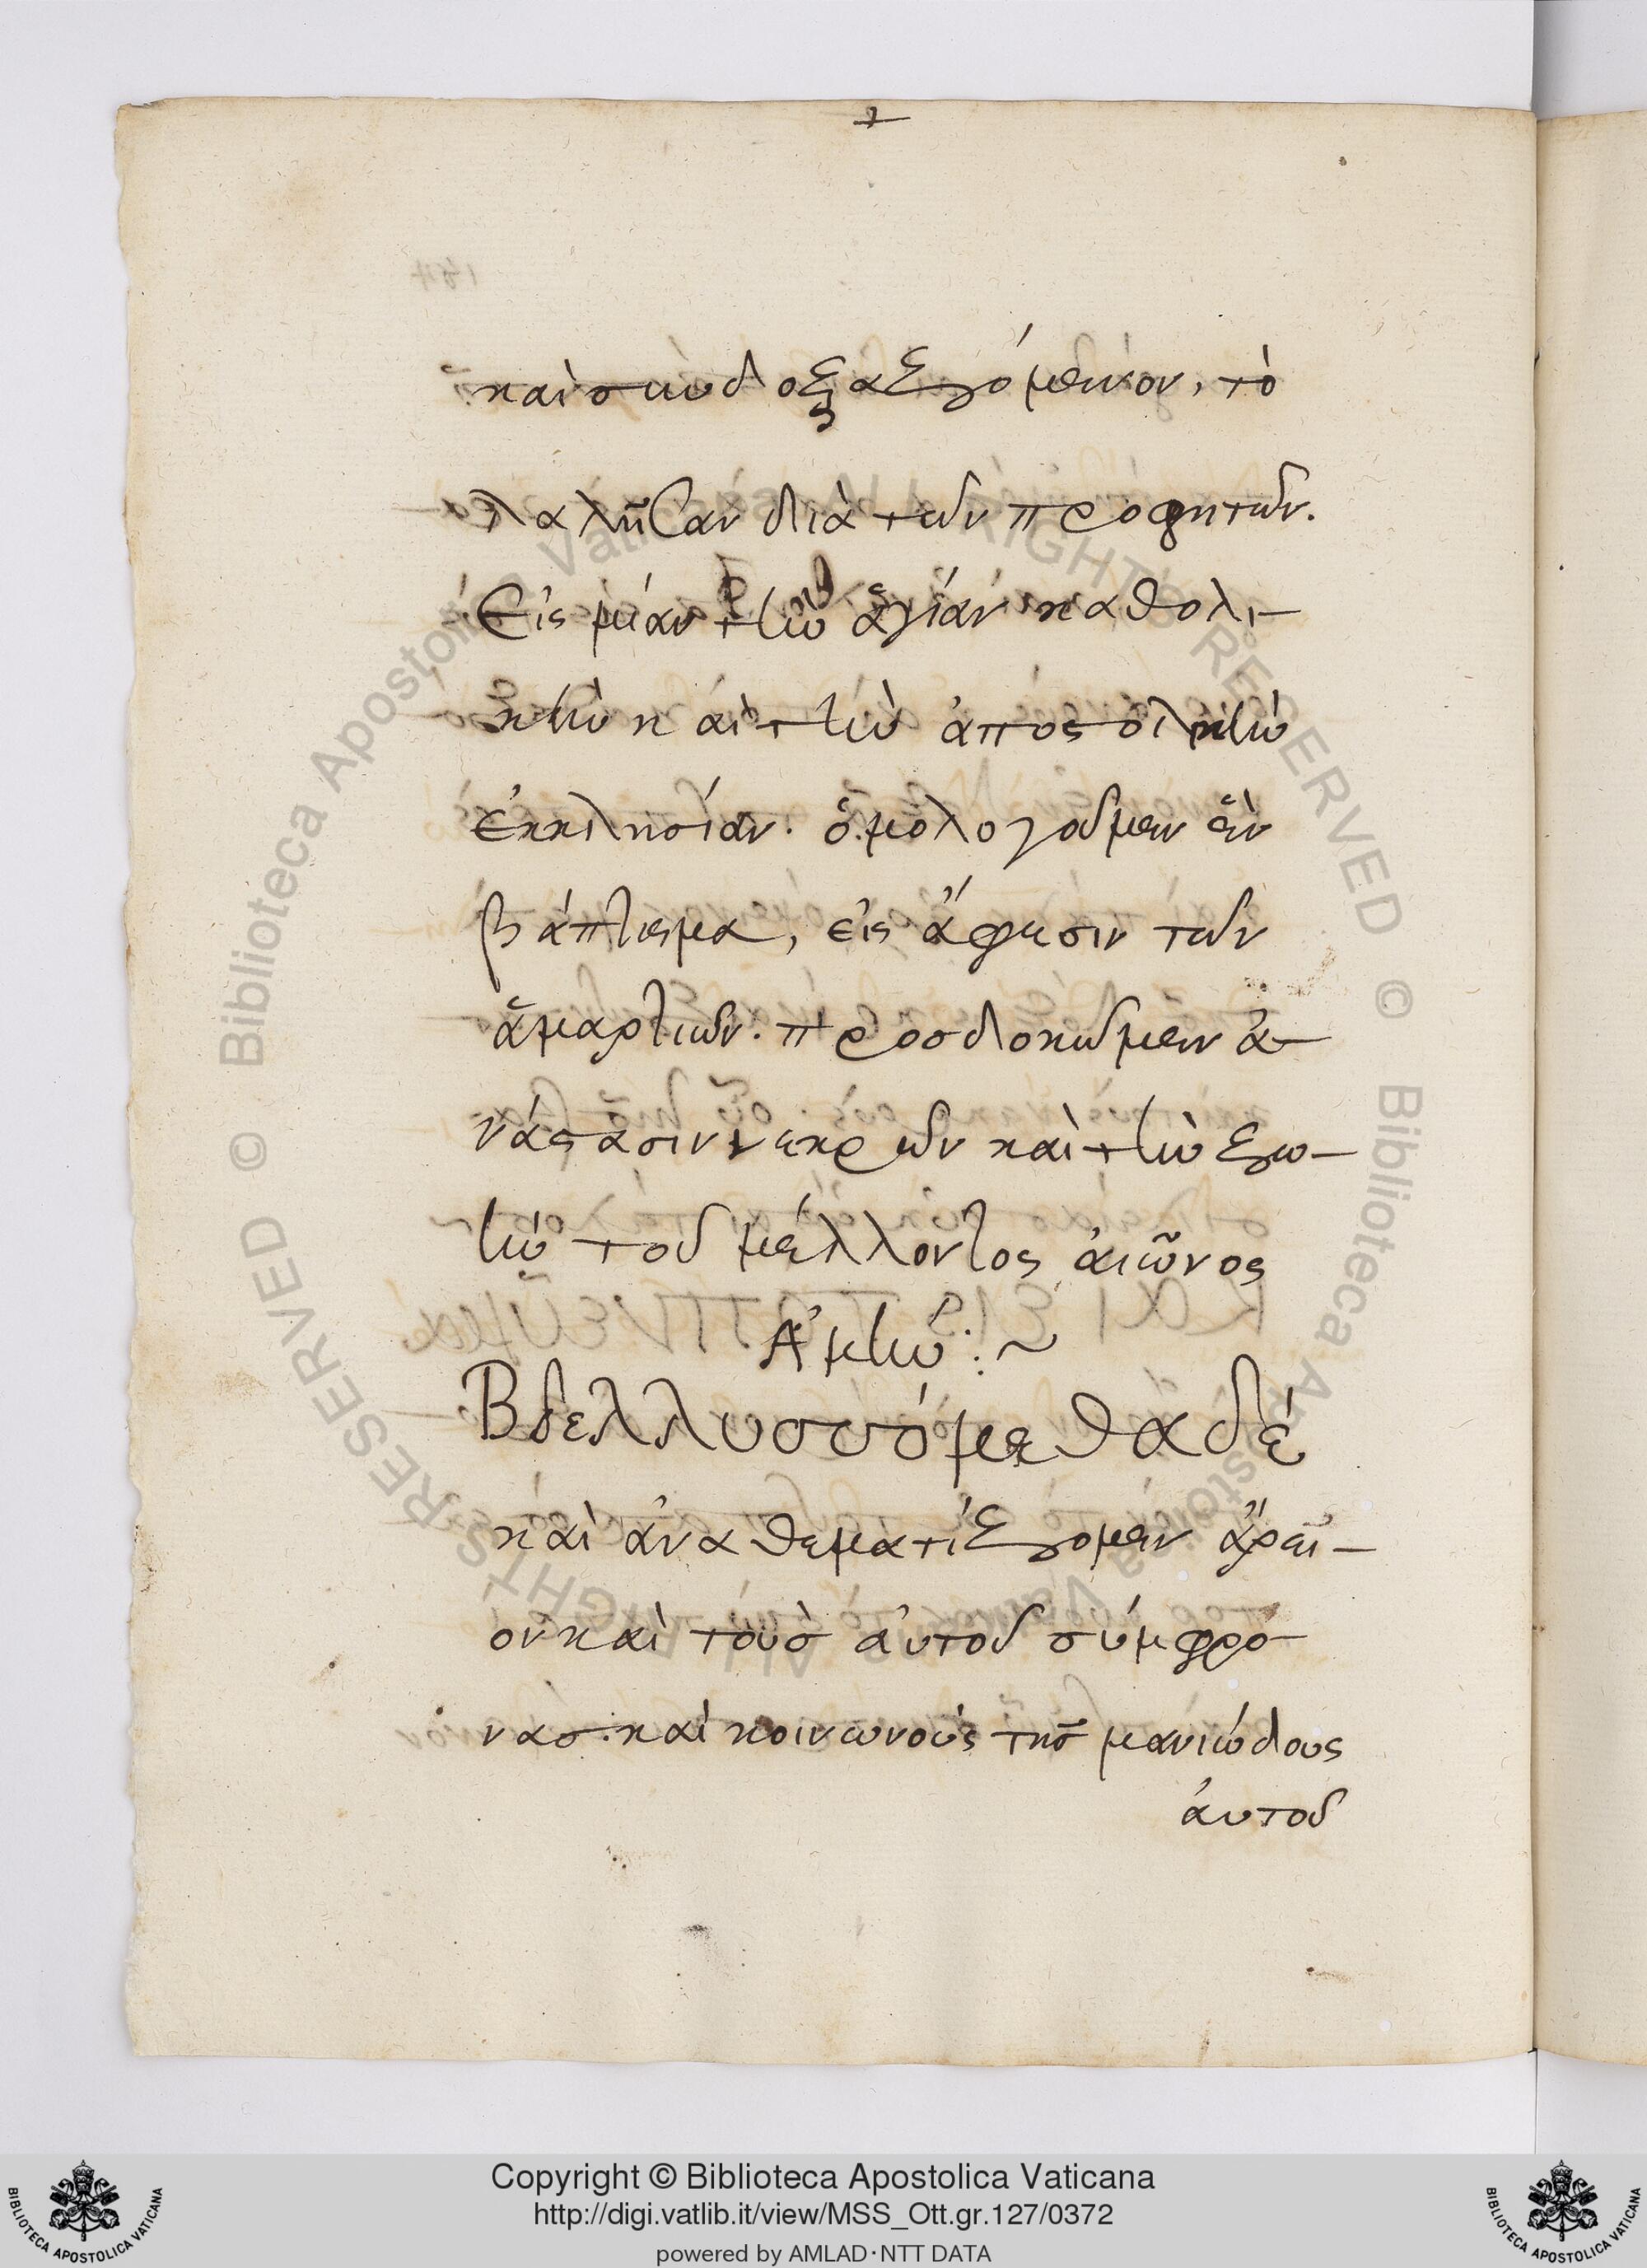 καὶ συνδοξαζόμενον, τὸ
λαλῆσαν διὰ τῶν προφητῶν.
Εἰς μίαν τὴν ἁγίαν καθολι-
κὴν καὶ τὴν ἀποστολικὴν
ἐκκλησίαν. ὁμολογοῦμεν ἓν
βάπτισμα, εἰς ἄφεσιν τῶν
ἁμαρτιῶν. προσδοκῶμεν ἀ-
νάστασιν νεκρῶν καὶ τὴν ζω-
ὴν τοῦ μέλλοντος ἀιῶνος
Ἀμήν :~
Βδελλυσσόμεθα δέ
καὶ ἀναθεματίζομεν ἄρει-
ον καὶ τοὺσ ἀυτοῦ σύμφρο-
νασ. καὶ κοινωνοὺς τῆσ μανιώδους
ἀυτοῦ
© Biblioteca Apostolica Vaticana ALL RIGHTS RESERVED
© Biblioteca Apostolica Vaticana ALL RIGHTS RESERVED
Copyright © Biblioteca Apostolica Vaticana
http://digi.vatlib.it/view/MSS_Ott.gr.127/0372
powered by AMLAD·NTT DATA
BIBLIOTECA APOSTOLICA VATICANA
BIBLIOTECA APOSTOLICA VATICANA